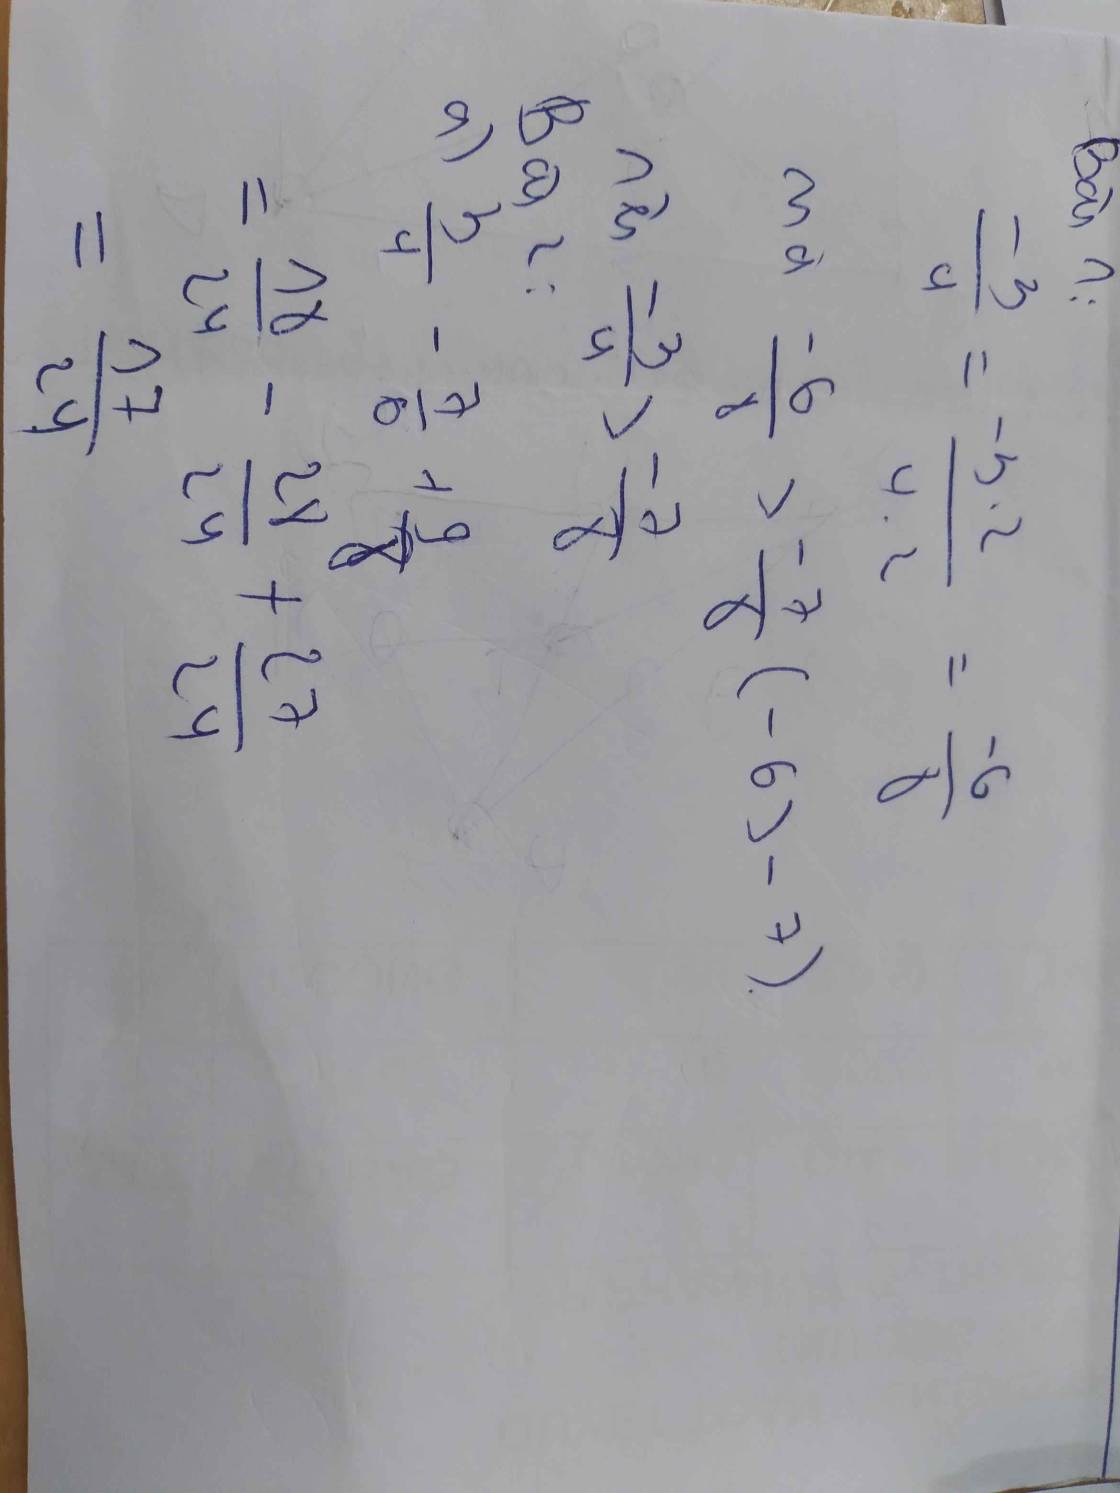 Bài 1:
-3/4 = -3.2/4.2 = -6/8
mà -6/8 > -7/8 (-6>-7)
nên -3/4 > -7/8
Bài 2:
a) 3/4 - 7/6 + 9/8
= 18/24 - 28/24 + 27/24
= 17/24